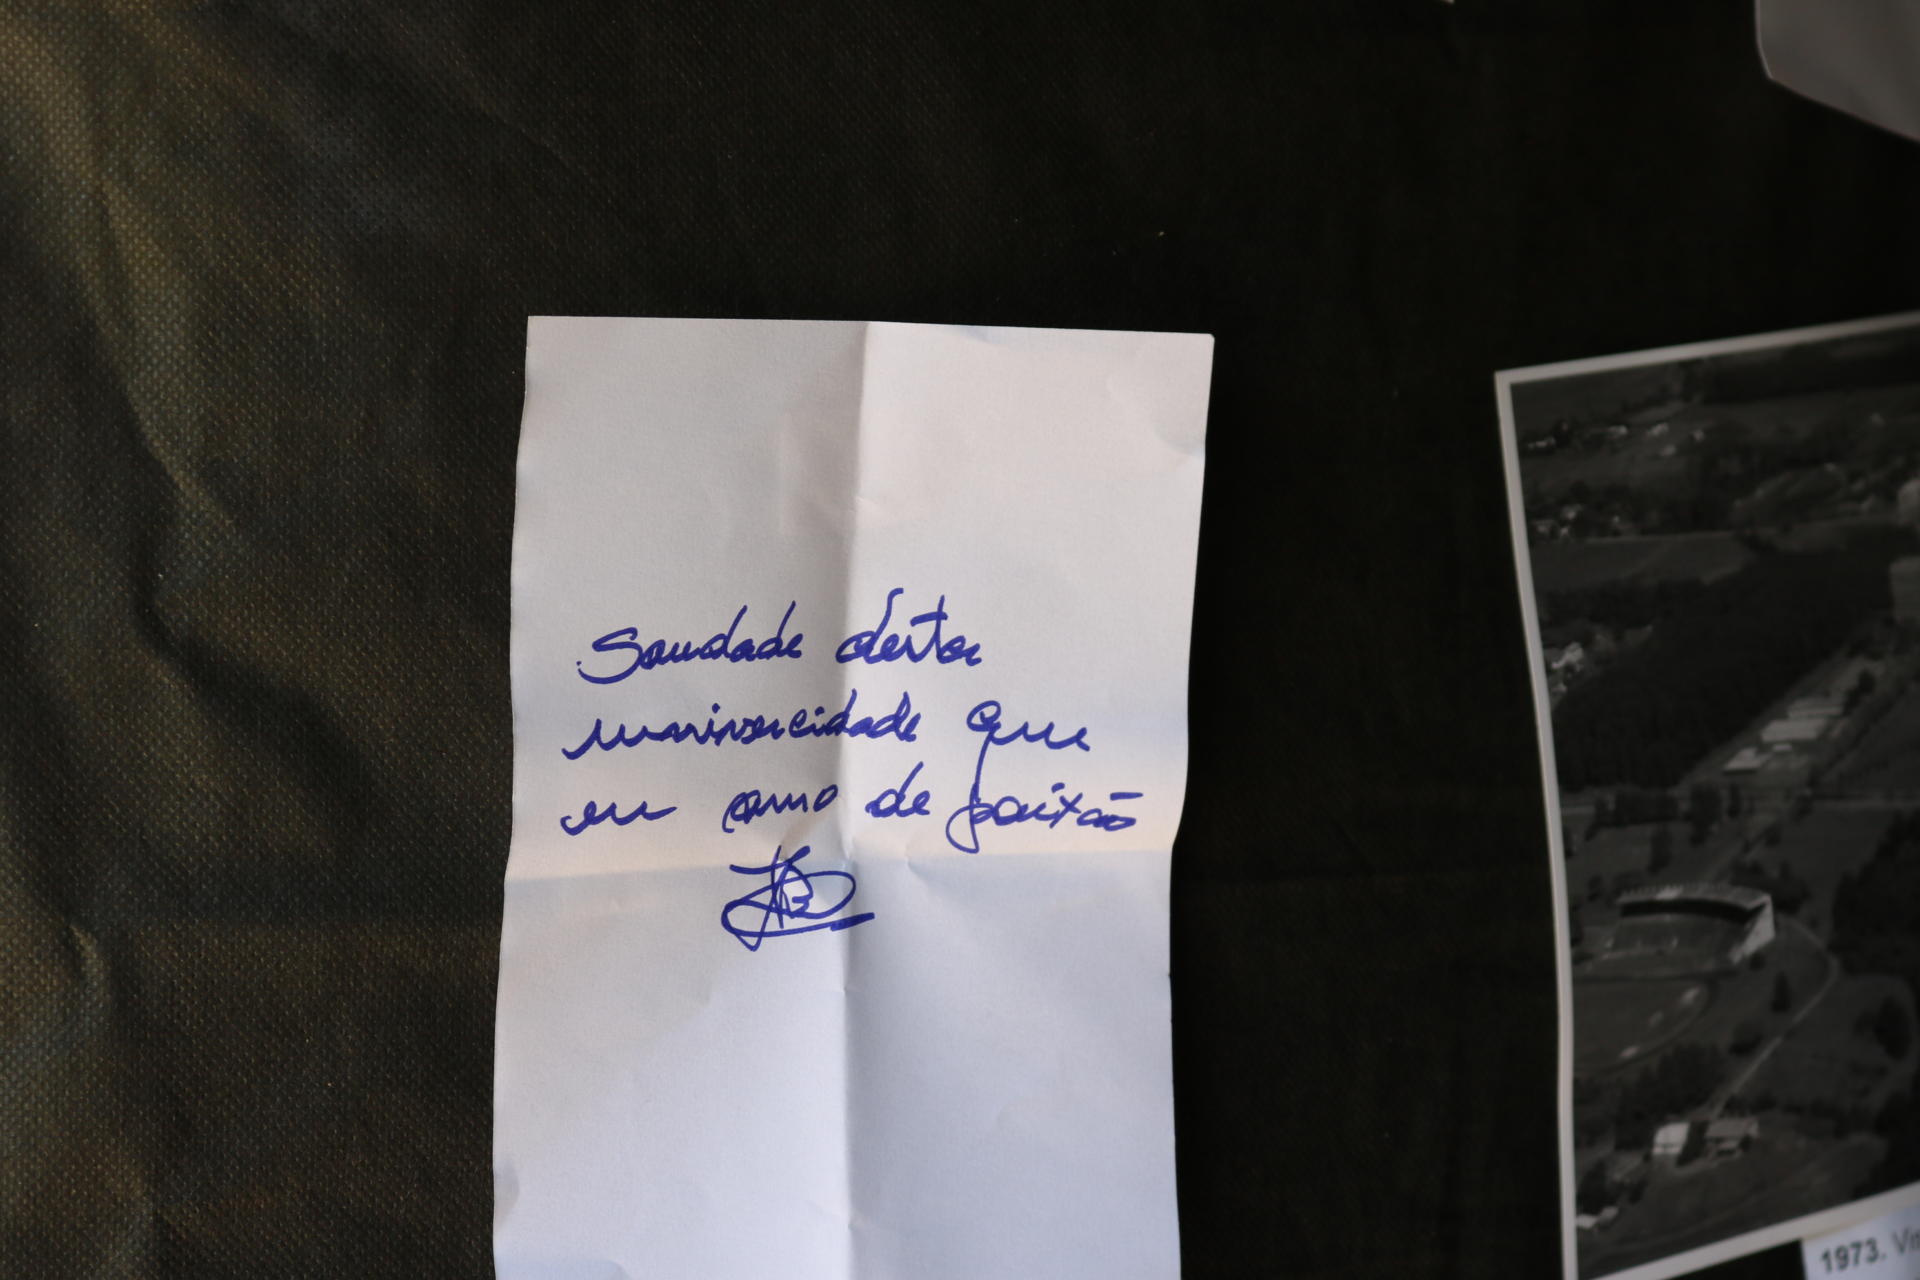 Saudade desta
universidade que
eu amo de paixão
1973.